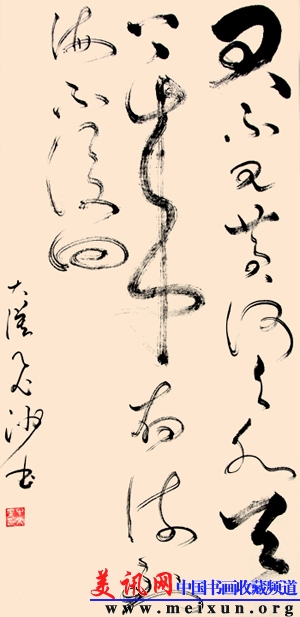 君不見黃河之水天
上來奔流到
海不復回
大漠飛沙書
美讯网 中国书画收藏频道
www.meixun.org